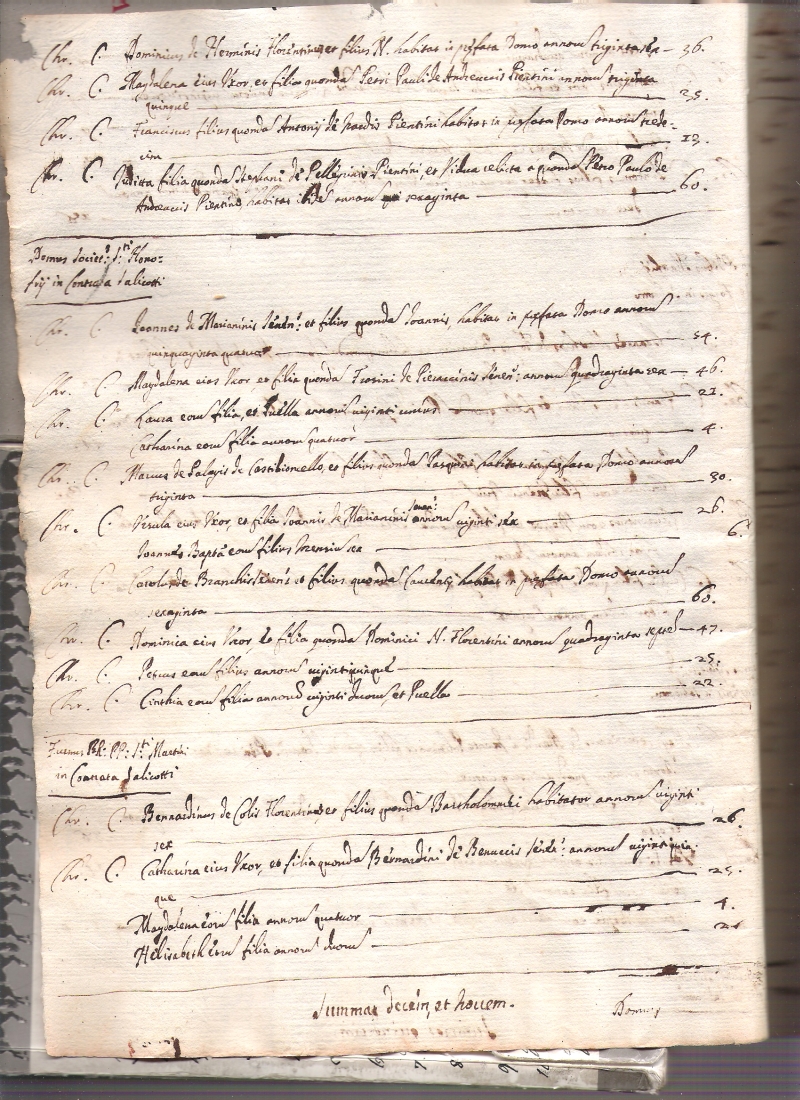 Chr. C. Dominicus de Herminis Florentinus et filius N. habitat in pfata Domo annorũ trigintasex — 36.
Chr. C. Magdalena eius Vxor, et filia quondã Petri Pauli de Andreuccis Pientini annorũ triginta
quinque — 35.
Chr. C. Franciscus filius quondã Antonij de Pientini habitat in pfata Domo annorũ trede-
cim — 13.
Chr. C. Juditta filia quondã Stephani de Pellegrinis Pientini, et Vidua relicta a quondã Petro Paulo de
Andreuccis Pientino habitat ibidẽ annorũ sexaginta — 60.
Domus Societ: S.ti Hono-
frij in Contrata Salicotti
Chr. C. Joannes de Marianinis Senen: et filius quondã Joannis, habitat in pfata Domo annorũ
quinquaginta quatuor — 54.
Chr. C. Magdalena eius Vxor et filia quondã Fusini de Pieraccinis Senen: annorũ quadraginta sex — 46.
Chr. C. Laura eorũ filia, et Puella annorũ uiginti unius — 21.
Catharina eorũ filia annorũ quatuor — 4.
Chr. C. Marcus de Palazis de Castilionello, et filius quondã Pasquini habitat in pfata Domo annorũ
triginta — 30.
Chr. C. Vrsula eius Vxor, et filia Joannis de Marianinis Senen: annorũ uiginti sex — 26.
Joannes Bapta eorũ filius mensiũ sex — 6.
Chr. C. Carolus de Branchis Senens et filius quondã Laurentij habitat in pfata Domo annorũ
sexaginta — 60.
Chr. C. Dominica eius Vxor, et filia quondã Dominici N. Florentini annorũ quadraginta septẽ — 47.
Chr. C. Petrus eorũ filius annorũ uigintiquinque — 25.
Chr. C. Cinthia eorũ filia annorũ uiginti duorũ, et Puella — 22.
Furnus RR: PP: S.ti Martini
in Contrata Salicotti
Chr. C. Bernardinus de Colis Florentinus et filius quondã Bartholomei habitator annorũ uiginti
sex — 26.
Chr. C. Catharina eius Vxor, et filia quondã Bernardini de Benuccis Senen: annorũ uigintiquin-
que — 25.
Magdalena eorũ filia annorũ quatuor — 4.
Helisabeth eorũ filia annorũ duorũ — 2
Summat decem, et nouem.
Domus